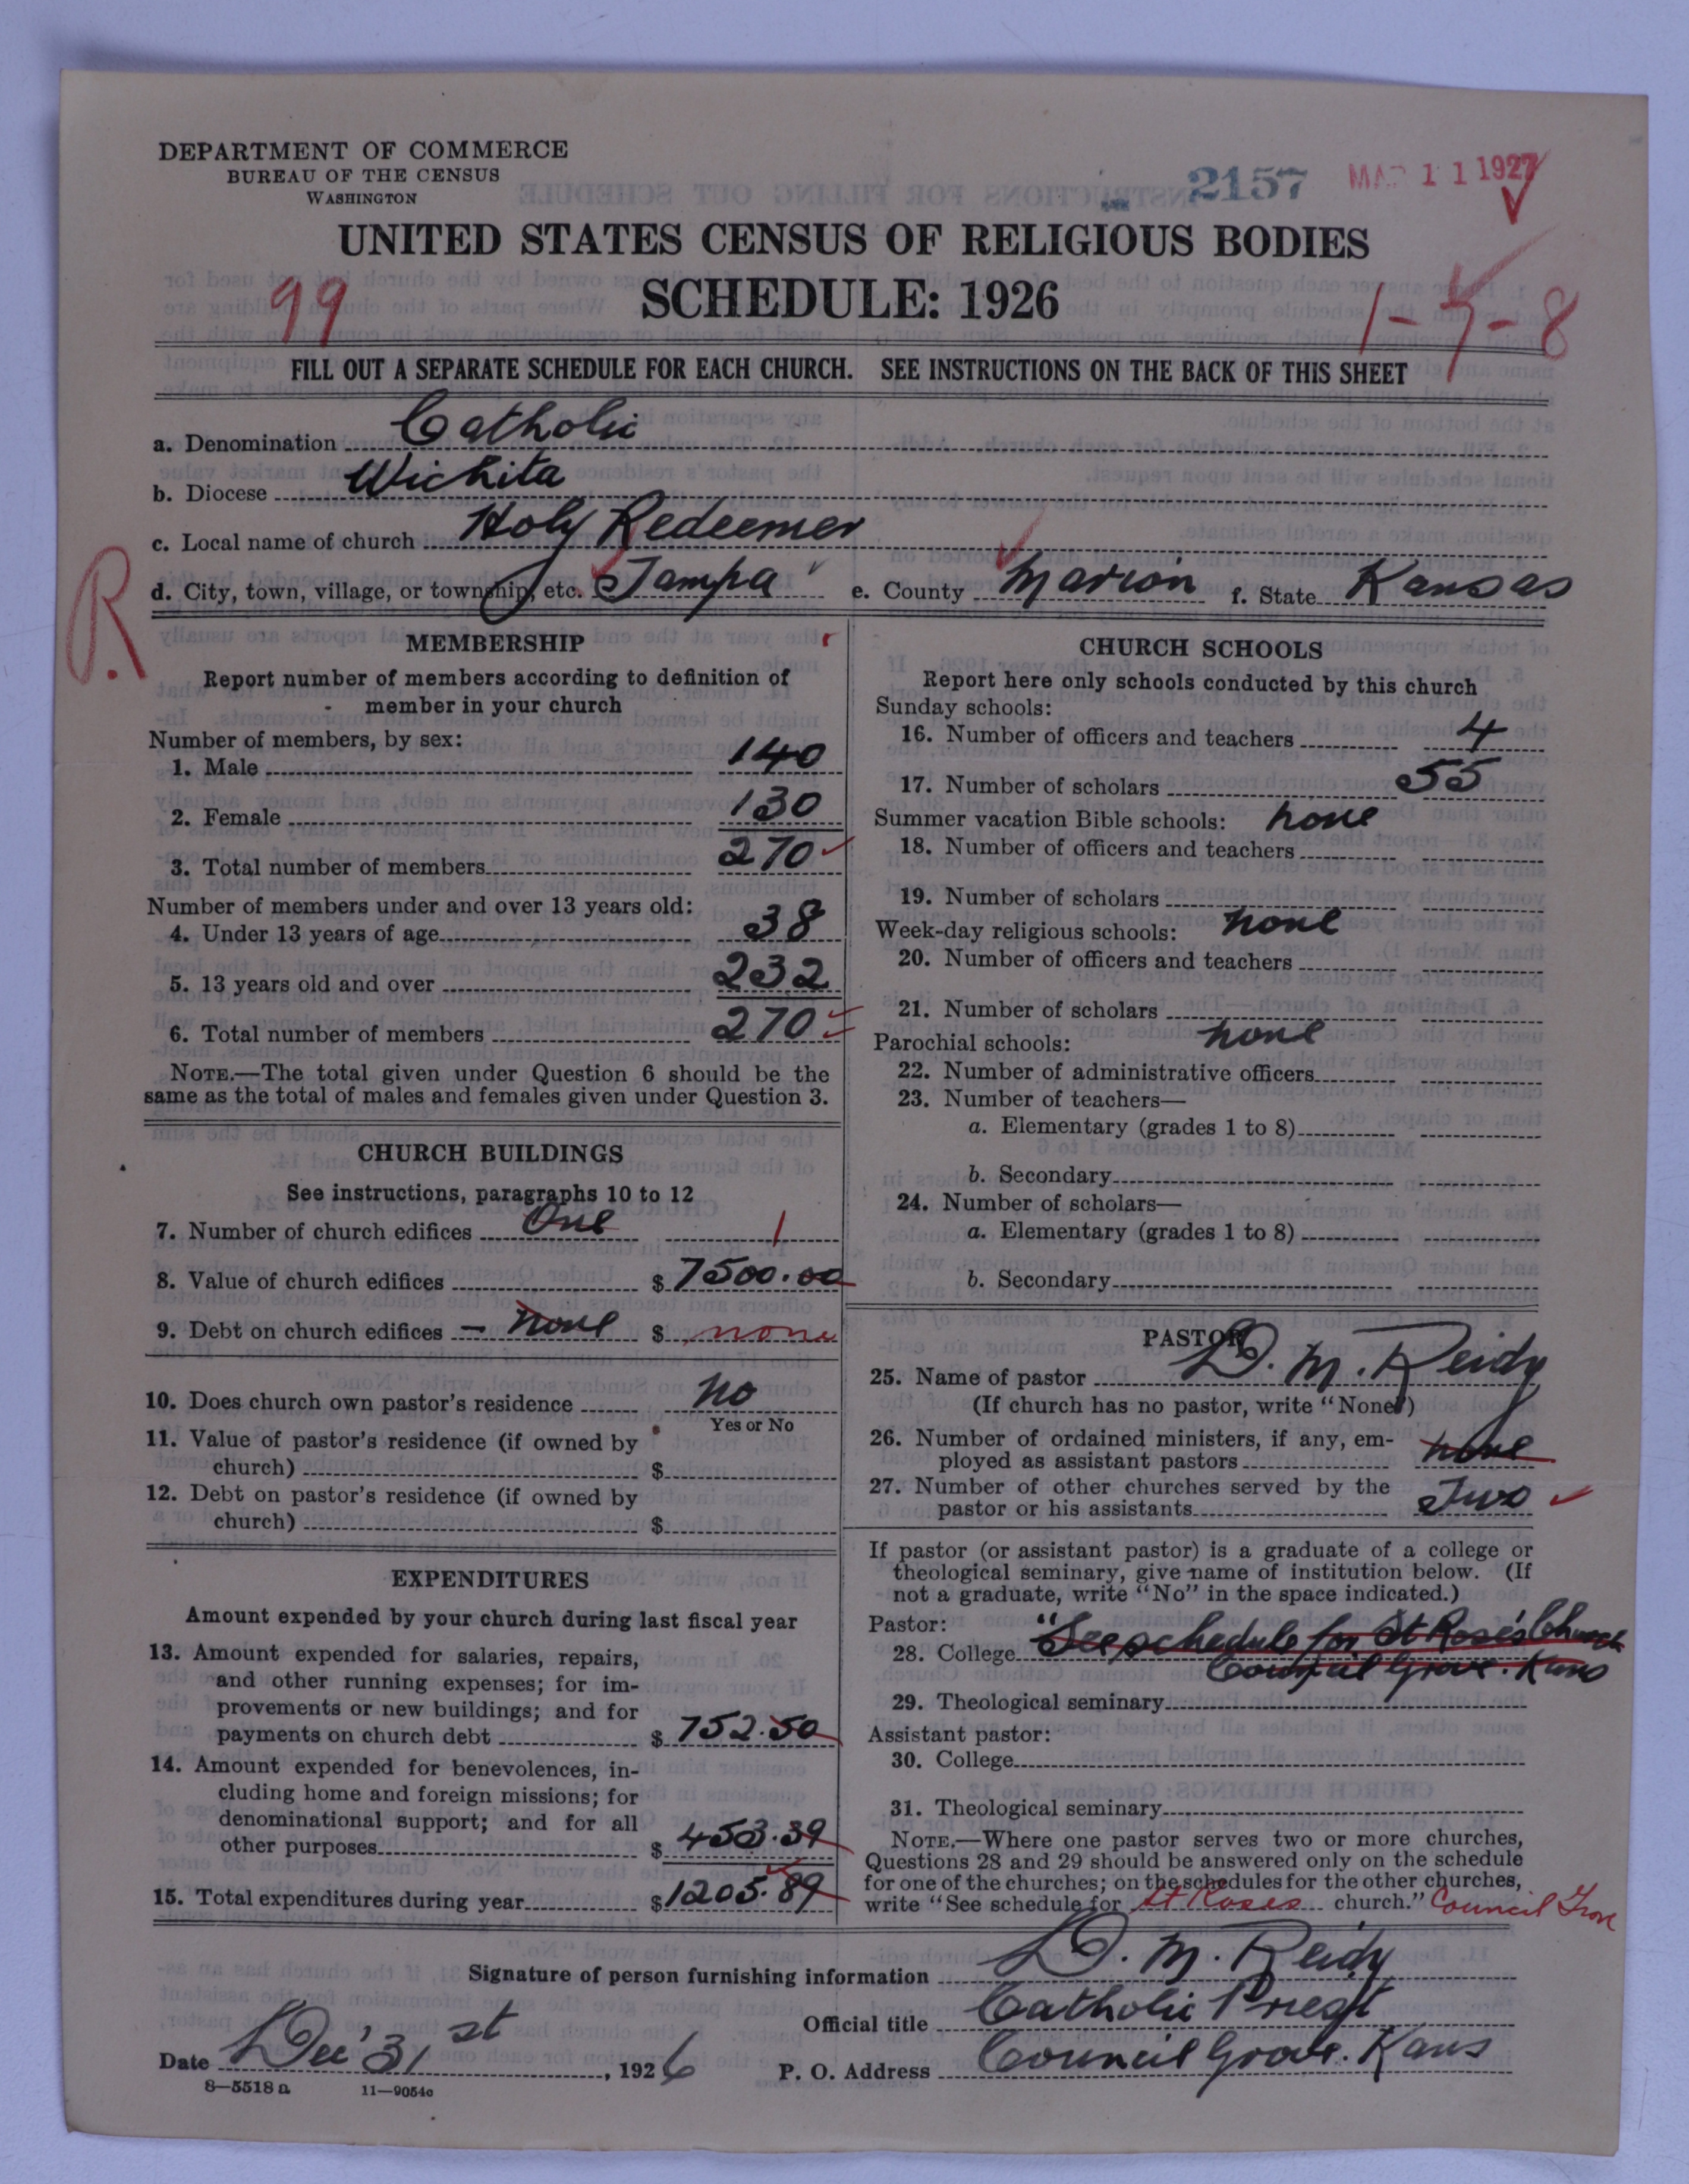 DEPARTMENT OF COMMERCE
BUREAU OF THE CENSUS
WASHINGTON
2157 MAR 11 1927
UNITED STATES CENSUS OF RELIGIOUS BODIES
SCHEDULE: 1926
99 1-5-8
FILL OUT A SEPARATE SCHEDULE FOR EACH CHURCH. SEE INSTRUCTIONS ON THE BACK OF THIS SHEET
a. Denomination Catholic
b. Diocese Wichita
c. Local name of church Holy Redeemer
d. City, town, village, or township, etc. Tampa e. County Marion f. State Kansas
R.
MEMBERSHIP
Report number of members according to definition of
member in your church
Number of members, by sex:
1. Male 140
2. Female 130
3. Total number of members 270
Number of members under and over 13 years old:
4. Under 13 years of age 38
5. 13 years old and over 232
6. Total number of members 270
NOTE.—The total given under Question 6 should be the
same as the total of males and females given under Question 3.
CHURCH BUILDINGS
See instructions, paragraphs 10 to 12
7. Number of church edifices One 1
8. Value of church edifices $ 7500.00
9. Debt on church edifices — none $ none
10. Does church own pastor's residence no
Yes or No
11. Value of pastor's residence (if owned by
church) $
12. Debt on pastor's residence (if owned by
church) $
EXPENDITURES
Amount expended by your church during last fiscal year
13. Amount expended for salaries, repairs,
and other running expenses; for im-
provements or new buildings; and for
payments on church debt $ 752.50
14. Amount expended for benevolences, in-
cluding home and foreign missions; for
denominational support; and for all
other purposes $ 453.39
15. Total expenditures during year $ 1205.89
CHURCH SCHOOLS
Report here only schools conducted by this church
Sunday schools:
16. Number of officers and teachers 4
17. Number of scholars 55
Summer vacation Bible schools: none
18. Number of officers and teachers
19. Number of scholars
Week-day religious schools: none
20. Number of officers and teachers
21. Number of scholars
Parochial schools: none
22. Number of administrative officers
23. Number of teachers—
a. Elementary (grades 1 to 8)
b. Secondary
24. Number of scholars—
a. Elementary (grades 1 to 8)
b. Secondary
PASTOR
25. Name of pastor D. M. Reidy
(If church has no pastor, write "None")
26. Number of ordained ministers, if any, em-
ployed as assistant pastors none
27. Number of other churches served by the
pastor or his assistants Two
If pastor (or assistant pastor) is a graduate of a college or
theological seminary, give name of institution below. (If
not a graduate, write "No" in the space indicated.)
Pastor:
28. College "See schedule for St Rose's Church
Council Grove. Kans
29. Theological seminary
Assistant pastor:
30. College
31. Theological seminary
NOTE.—Where one pastor serves two or more churches,
Questions 28 and 29 should be answered only on the schedule
for one of the churches; on the schedules for the other churches,
write "See schedule for St Roses church." Council Grove
Signature of person furnishing information D. M. Reidy
Official title Catholic Priest
Date Dec 31st, 1926 P. O. Address Council Grove. Kans
8—5518 a 11—9054c